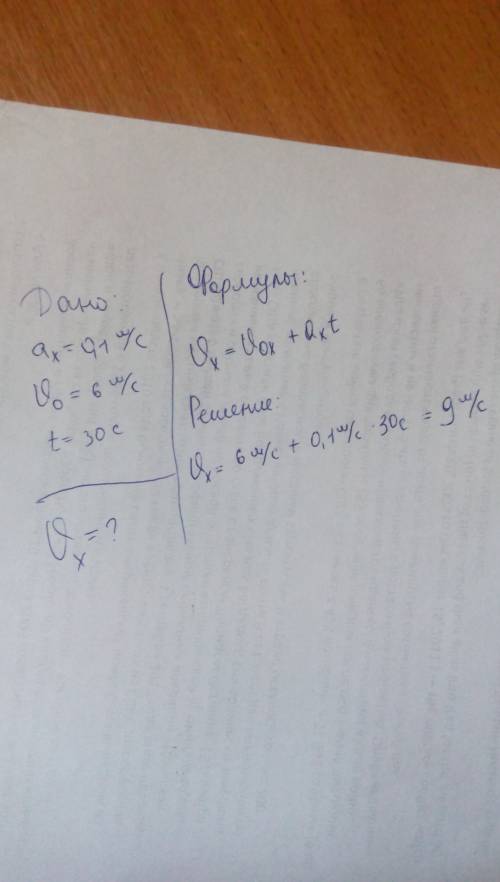 Дано:
aₓ = 0,1 м/с
υ₀ = 6 м/с
t = 30 с
υₓ = ?
Формулы:
υₓ = υ₀ₓ + aₓt
Решение:
υₓ = 6 м/с + 0,1 м/с · 30с = 9 м/с